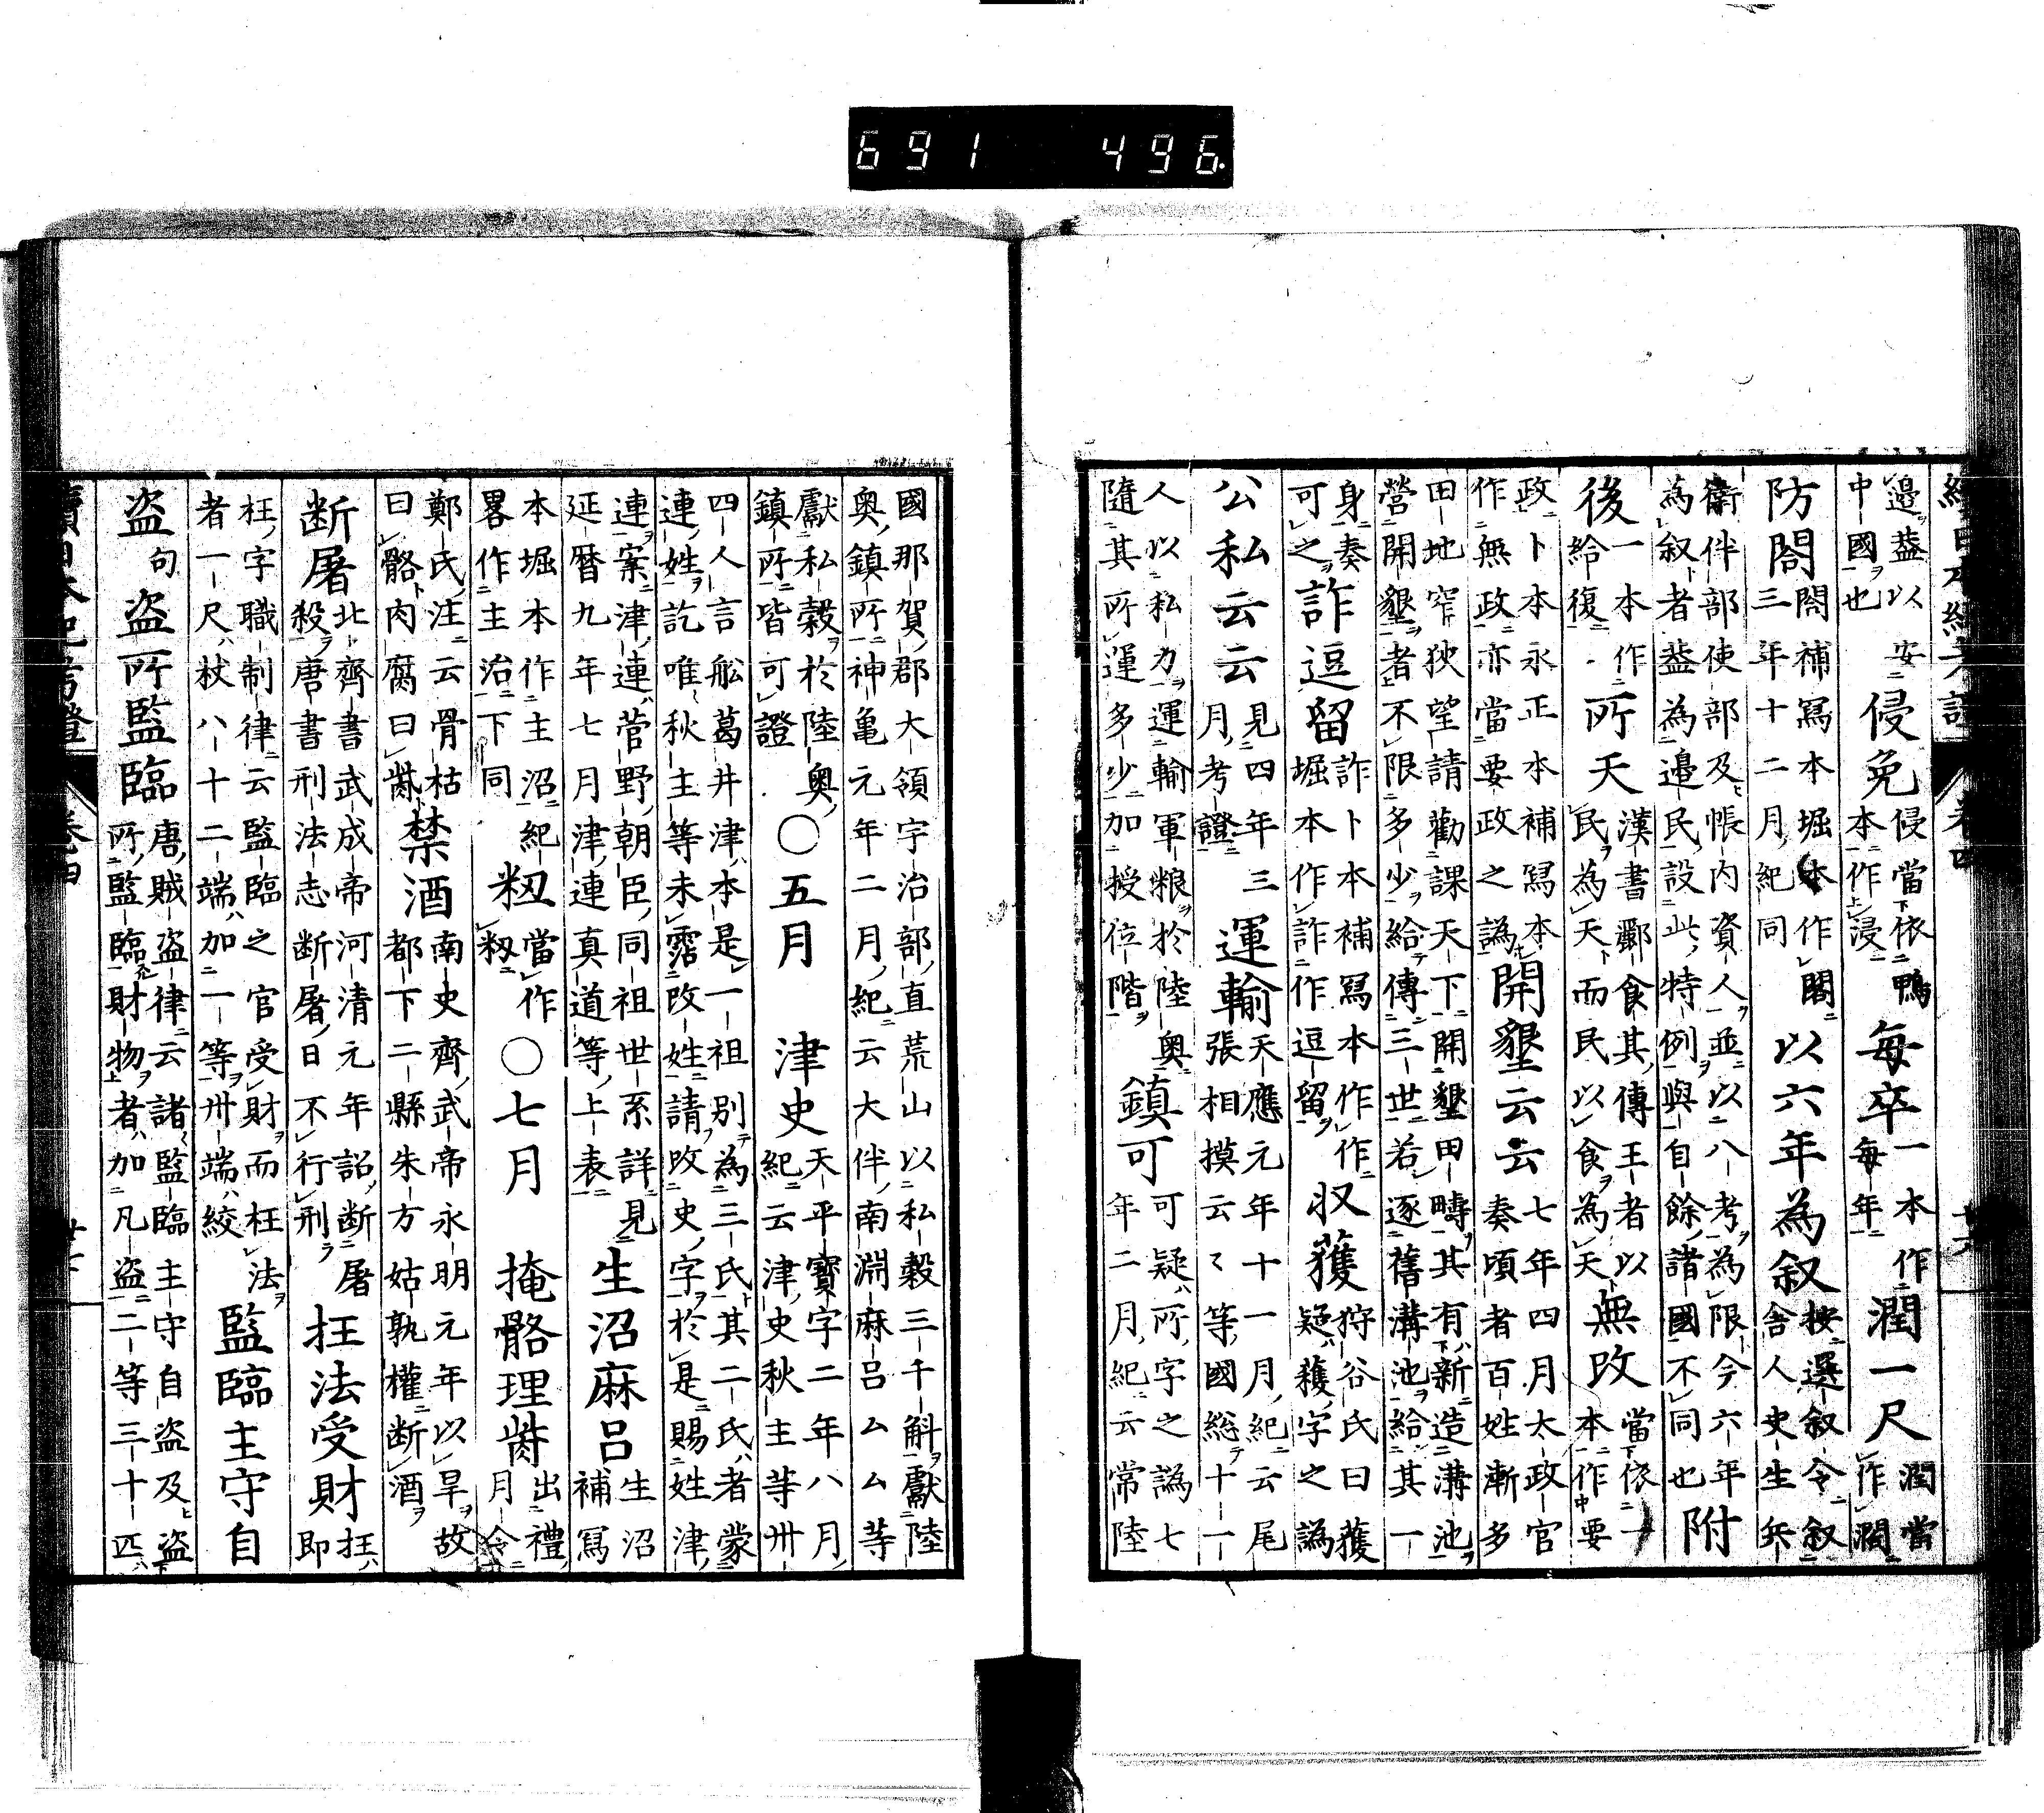 691 496
邉蓋以安
中國也
侵免
侵當依鴨
本作浸
每卒
一本作
每年
潤一尺
潤當
作濶
防閤
閤補寫本堀本作閤
三年十二月紀同
以六年為叙
按選叙令叙
舎人史生兵
衛伴部使部及帳内資人並以八考為限今六年
為叙者蓋為邉民設此特例與自餘諸國不同也
附
後
一本作
給復
所天
漢書酈食其傳王者以
民為天而民以食為天
無改
當依一
本作要
政卜本永正本補寫本
作無政亦當要政之譌
開墾云云
七年四月太政官
奏頃者百姓漸多
田地窄狭望請勸課天下開墾田疇其有新造溝池
營開墾者不限多少給傳三世若逐舊溝池給其一
身奏
可之
詐逗留
詐卜本補寫本作作
堀本作詐作逗留
収獲
狩谷氏曰獲
疑穫字之譌
公私云云
見四年三
月考證
運輸
天應元年十一月紀云尾
張相摸云々等國総十一
人以私力運輸軍粮於陸奥
隨其所運多少加授位階
鎮可
可疑所字之譌七
年二月紀云常陸
國那賀郡大領宇治部直荒山以私穀三千斛獻陸
奥鎮所神亀元年二月紀云大伴南淵麻呂厶厶等
獻私穀於陸奥
鎮所皆可證
〇五月
津史
天平寶字二年八月
紀云津史秋主等卅
四人言舩葛井津本是一祖別為三氏其二氏者蒙
連姓訖唯秋主等未霑改姓請改史字於是賜姓津
連案津連菅野朝臣同祖世系詳見
延暦九年七月津連真道等上表
生沼麻呂
生沼
補寫
本堀本作主沼紀
畧作主治下同
籾
當作
籾
〇七月
掩骼理胔
出禮
月令
鄭氏注云骨枯
曰骼肉腐曰胔
禁酒
南史齊武帝永明元年以旱故
都下二縣朱方姑孰權断酒
断屠
北齊書武成帝河清元年詔断屠
殺唐書刑法志断屠日不行刑
抂法受財
抂
即
枉字職制律云監臨之官受財而枉法
者一尺杖八十二端加一等卅端絞
監臨主守自
盗
句
盗所監臨
唐賊盗律云諸監臨主守自盗及盗
所監臨財物者加凡盗二等三十匹
續日本紀考證
卷四